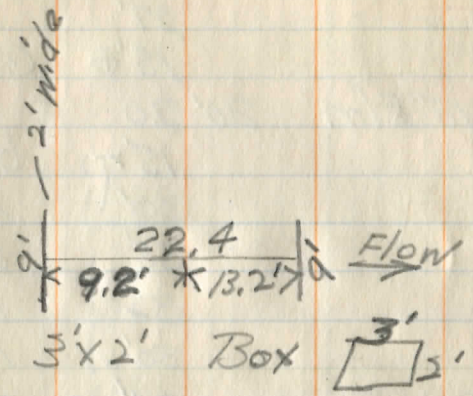 2' wide
22.4
9' 9.2' 13.2' 9' Flow
3'x2' Box 3' 2'